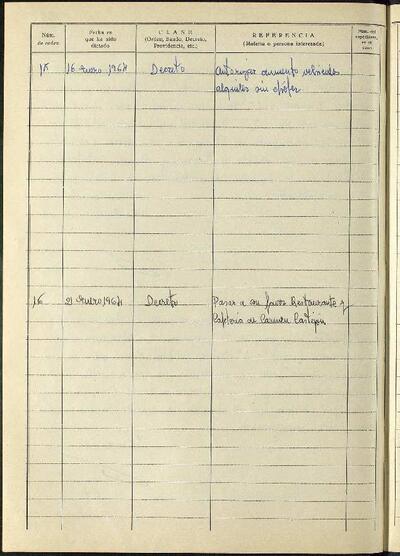 Núm. de orden
Fecha en que ha sido dictado
CLASE
(Orden, Bando, Decreto, Providencia, etc.)
REFERENCIA
(Materia o persona interesada)
15 16 Enero 1964 Decreto Autorizar aumento vehículos
alquiler sin chófer
16 21 Enero 1964 Decreto Pasar a su favor Restaurante y
Cafetería de Carmen Castejón